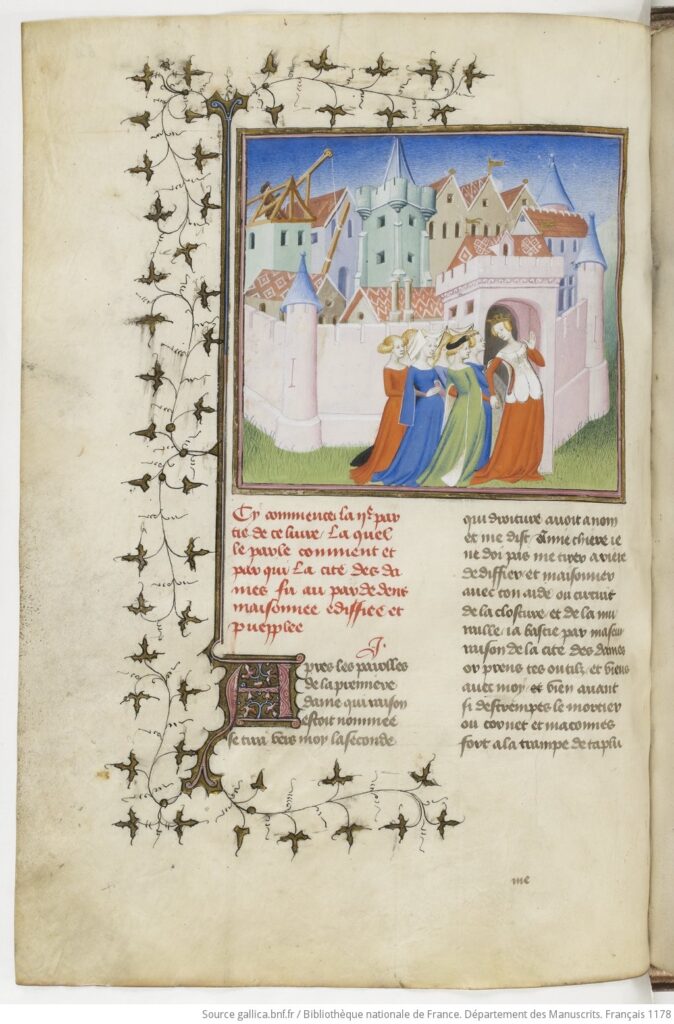 Cy commence la iie par
tie de ce livre La quel
le parle comment et
par qui La cite des da
mes fu au par dedens
maisonnee ediffiee et
pueplee
Apres les parolles
de la premiere
dame qui raison
estoit nommee
se tira vers moy la seconde
qui droiture avoit a nom
et me dist chiere ie
ne doi pas me tirer arriere
dediffier et maisonner
avec ton aide ou circuit
de la closture et de la mu
raille ia bastie par
raison de la cite des dames
or prens tes outilz et viens
avec moy et vien avant
si destrempes le mortier
ou cornet et maconnes
fort a la trampe de ta plu
me
Source gallica.bnf.fr / Bibliothèque nationale de France. Département des Manuscrits. Français 1178